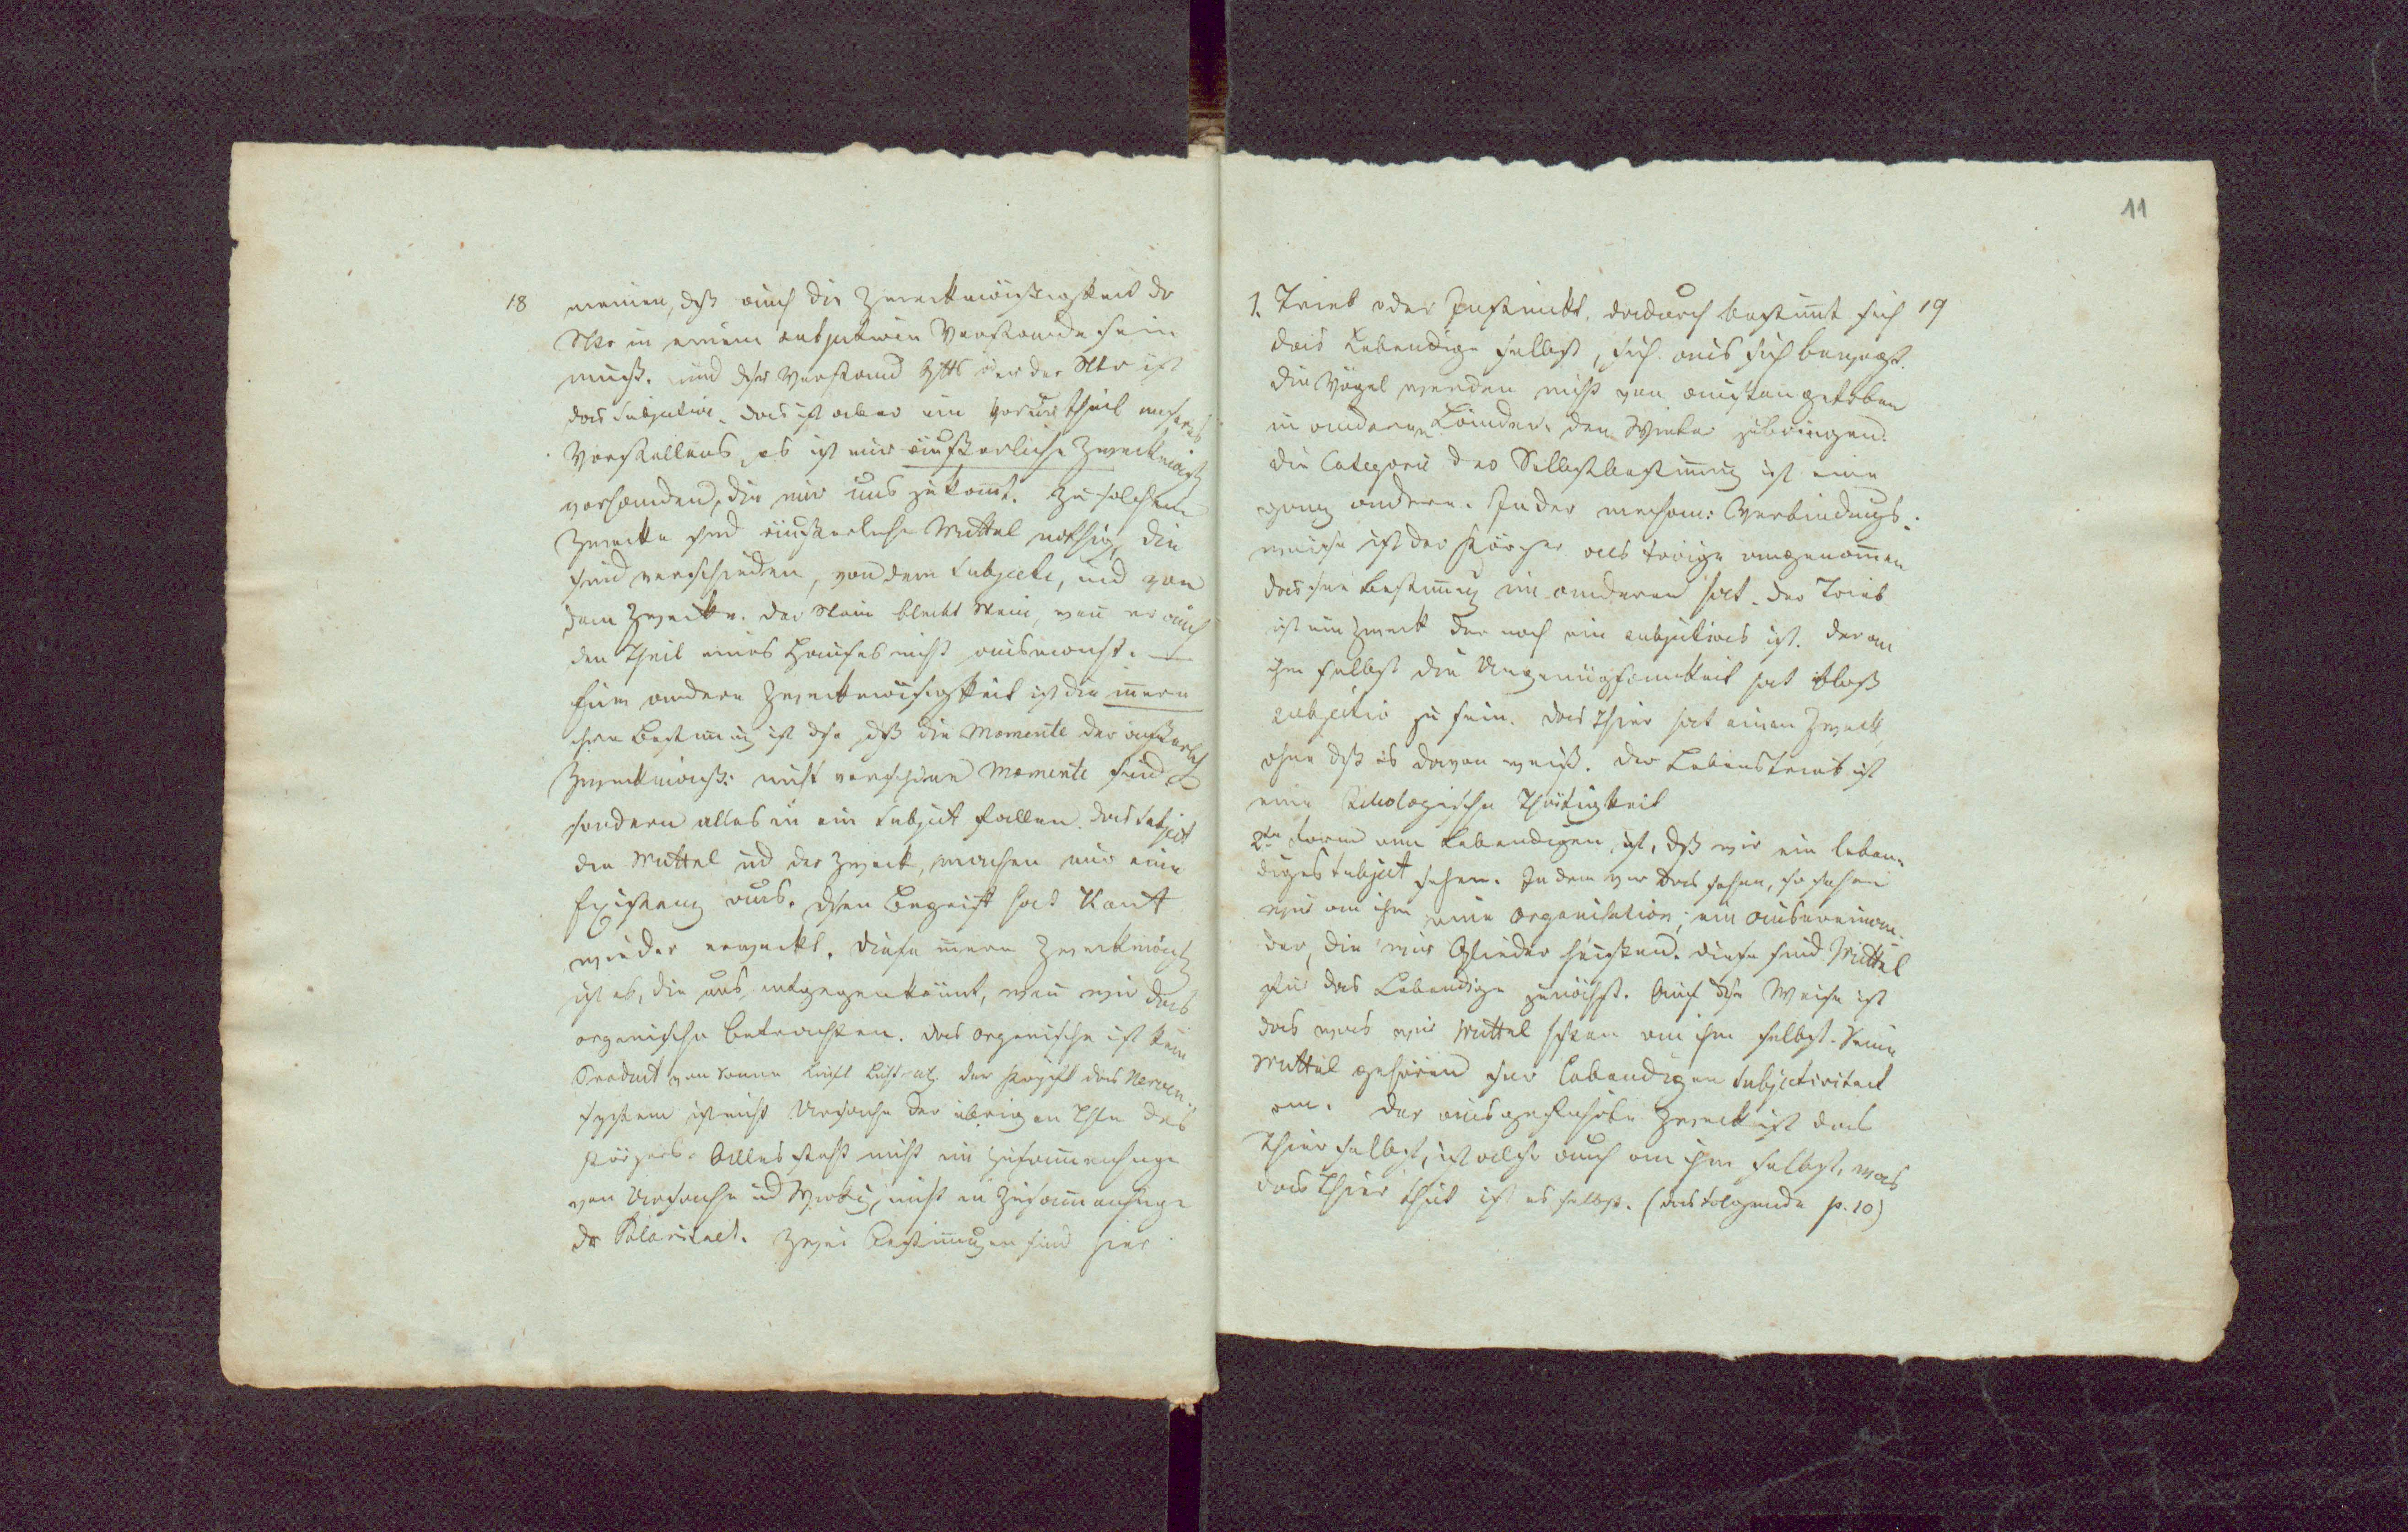 11
18 meinen, dß auch die Zweckmäßigkeit dr
Ntr in einem subjectiven Verstande sein
muß. und dser Verstand Gtts oder der Ntr ist
das Subjective. das ist aber ein Vorurtheil unseres
Vorstellens, es ist nur äußerliche Zweckmäßigk
vorhanden, die nur uns zukomt. Zu solchem
Zwecke sind äußerliche Mittel nöthig, die
sind verschieden, von dem Subjecte, und von
dem Zwecke. Der Stein bleibt Stein, wen er auch
den Theil eines Hauses nicht ausmacht. —
Eine andere Zweckmäßigkeit ist die inere
ihre Bestimung ist dse, dß die Momente der äußerlich
Zweckmäß: nicht verschiedene Momente sind
sondern alles in ein Subject fallen. das Subject
die Mittel und der Zweck, machen nur eine
Existenz aus. dsen Begriff hat Kant
wieder erweckt. diese inere Zweckmäßigk
ist es, die uns entgegenkömt, wen wir das
organische betrachten. das organische ist kein
Product von Sonne Luft Licht etc. der Kopf das Nerven-
system ist nicht Ursache der übrigen Thle des
Körpers. Alles steht nicht im Zusamenhange
von Ursache und Wirkung, nicht im Zusamenhange
dr Polarität. Zwei Bestimungen sind hier
1. Trieb oder Instinkt. dadurch bestimt sich 19
das Lebendige selbst, sich aus sich bewegt.
die Vögel werden nicht von außen getrieben
in anderen Länder den Winter zubringen.
die Categorie des Selbstbestimung ist eine
ganz andere. In der mechan: Verbindungs-
weise ist der Körper als träge angenomen
das sne Bestimung im anderen hat. der Trieb
ist ein Zweck der noch ein subjectives ist. der an
ihm selbst die Ungenügsamkeit hat bloß
subjectiv zu sein. das Thier hat einen Zweck
ohne dß es davon weiß. der Lebenstrieb ist
eine Teleologische Thätigkeit
2te Form am Lebendigen ist, dß wir ein leben-
diges Subject sehen. Indem wir das sehen, so sehen
wir an ihm eine Organisation; ein auseinan-
der, die wir Glieder heißen. diese sind Mittel
für das Lebendige zunächst. Auf dse Weise ist
das was wir Mittel hßen an ihm selbst. Seine
Mittel gehören sner lebendigen Subjectivitaet
an. Der ausgeführte Zweck ist das
Thier selbst, ist also auch an ihm selbst, was
das Thier thut ist es selbst. (das folgende p. 10)